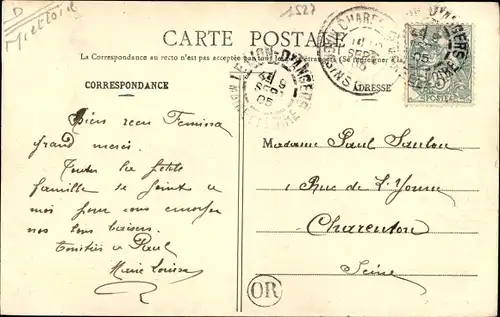 D
Mlettoise
1527
CARTE POSTALE
La Correspondance au recto n'est pas acceptée par tous les pays étrangers (Se renseigner à la
CORRESPONDANCE
ADRESSE
LE LION-D'ANGERS
9
SEPT
05
CHAREN
SEPT
POSTE
5
Bien reçu Femina
grand merci.
Toute la petite
famille se joint à
moi pour vous envoyer
nos bons baisers.
Amitiés à Paul
Marie Louise
Madame Paul
1 Rue de L'Yonne
Charenton
Seine
OR